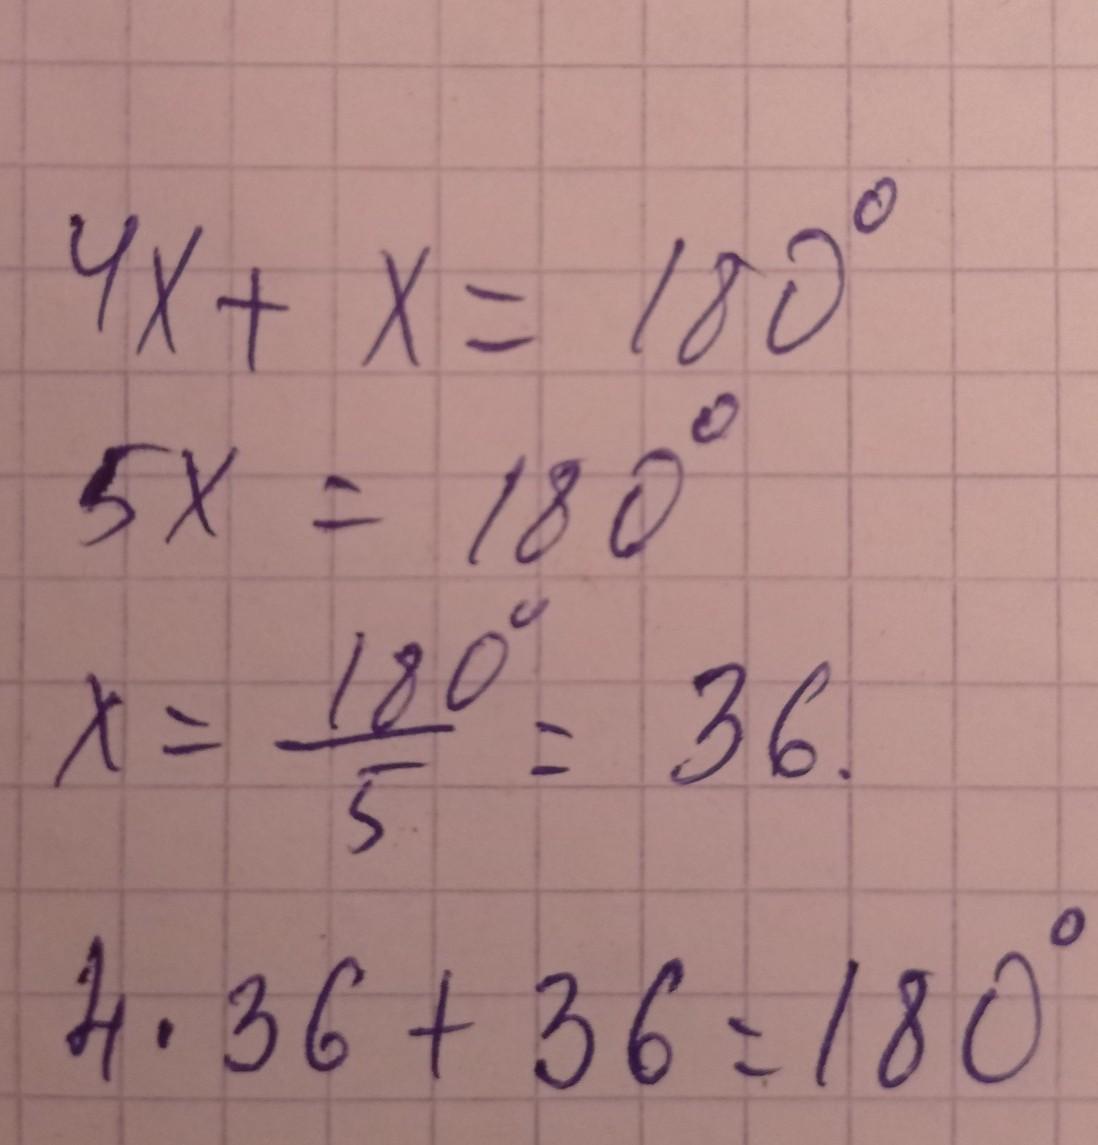 4x + x = 180°
5x = 180°
x = 180° / 5 = 36.
4 · 36 + 36 = 180°